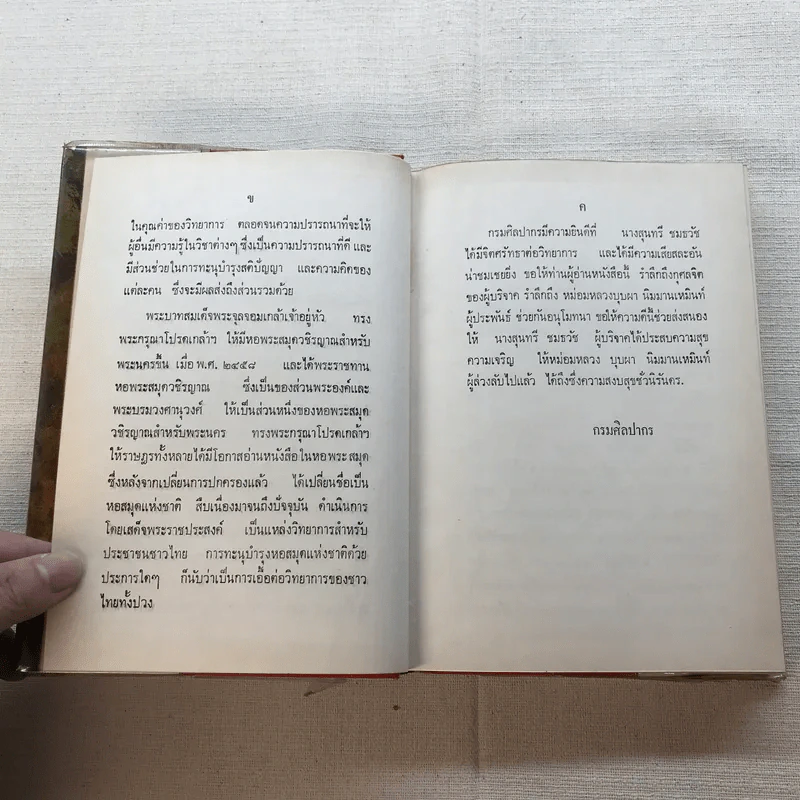 ข
ในคุณค่าของวิทยาการ ตลอดจนความปรารถนาที่จะให้
ผู้อื่นมีความรู้ในวิชาต่างๆ ซึ่งเป็นความปรารถนาที่ดี และ
มีส่วนช่วยในการทะนุบำรุงสติปัญญา และความคิดของ
แต่ละคน ซึ่งจะมีผลส่งถึงส่วนรวมด้วย
พระบาทสมเด็จพระจุลจอมเกล้าเจ้าอยู่หัว ทรง
พระกรุณาโปรดเกล้าฯ ให้มีหอพระสมุดวชิรญาณสำหรับ
พระนครขึ้น เมื่อ พ.ศ. ๒๔๔๘ และได้พระราชทาน
หอพระสมุดวชิรญาณ ซึ่งเป็นของส่วนพระองค์และ
พระบรมวงศานุวงศ์ ให้เป็นส่วนหนึ่งของหอพระสมุด
วชิรญาณสำหรับพระนคร ทรงพระกรุณาโปรดเกล้าฯ
ให้ราษฎรทั้งหลายได้มีโอกาสอ่านหนังสือในหอพระสมุด
ซึ่งหลังจากเปลี่ยนการปกครองแล้ว ได้เปลี่ยนชื่อเป็น
หอสมุดแห่งชาติ สืบเนื่องมาจนถึงปัจจุบัน ดำเนินการ
โดยเสด็จพระราชประสงค์ เป็นแหล่งวิทยาการสำหรับ
ประชาชนชาวไทย การทะนุบำรุงหอสมุดแห่งชาติด้วย
ประการใดๆ ก็นับว่าเป็นการเอื้อต่อวิทยาการของชาว
ไทยทั้งปวง
ค
กรมศิลปากรมีความยินดีที่ นางสุนทรี ชมธวัช
ได้มีจิตศรัทธาต่อวิทยาการ และได้มีความเสียสละอัน
น่าชมเชยยิ่ง ขอให้ท่านผู้อ่านหนังสือนี้ รำลึกถึงกุศลจิต
ของผู้บริจาค รำลึกถึง หม่อมหลวงบุบผา นิมมานเหมินท์
ผู้ประพันธ์ ช่วยกันอนุโมทนา ขอให้ความดีนี้ช่วยส่งสนอง
ให้ นางสุนทรี ชมธวัช ผู้บริจาคได้ประสบความสุข
ความเจริญ ให้หม่อมหลวง บุบผา นิมมานเหมินท์
ผู้ล่วงลับไปแล้ว ได้ถึงซึ่งความสงบสุขชั่วนิรันดร.
กรมศิลปากร